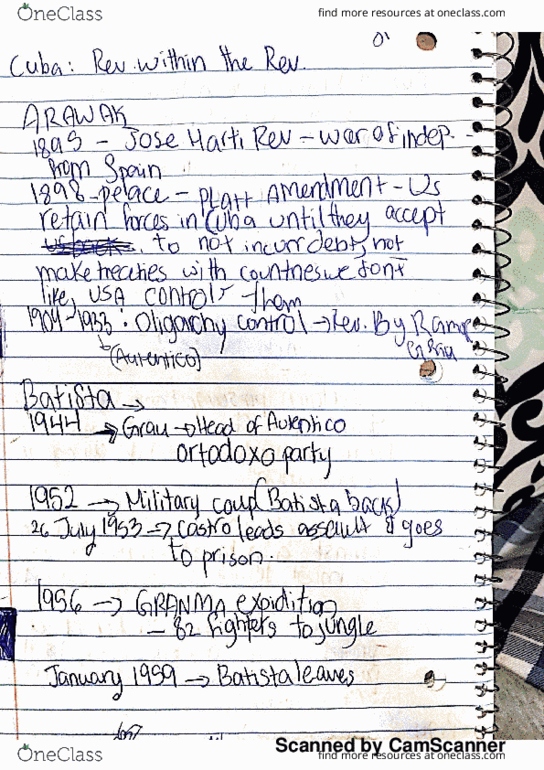 OneClass
find more resources at oneclass.com
Cuba: Rev. within the Rev.
ARAWAK
1895 - Jose Marti Rev - war of indep.
from Spain
1898 - peace - Platt Amendment - US
retain forces in Cuba until they accept
to not incurr debts, not
make treaties with countries we dont
like, USA controls them
1904-1933: Oligarchy control → Rev. By Ramon
Grau
(Autentico)
Batista →
1944 → Grau → Head of Autentico
ortodoxo party
1952 → Military coup (Batista back)
26 July 1953 → Castro leads assault & goes
to prison.
1956 → GRANMA expidition
- 82 fighters to jungle
January 1959 → Batista leaves
Scanned by CamScanner
OneClass
find more resources at oneclass.com